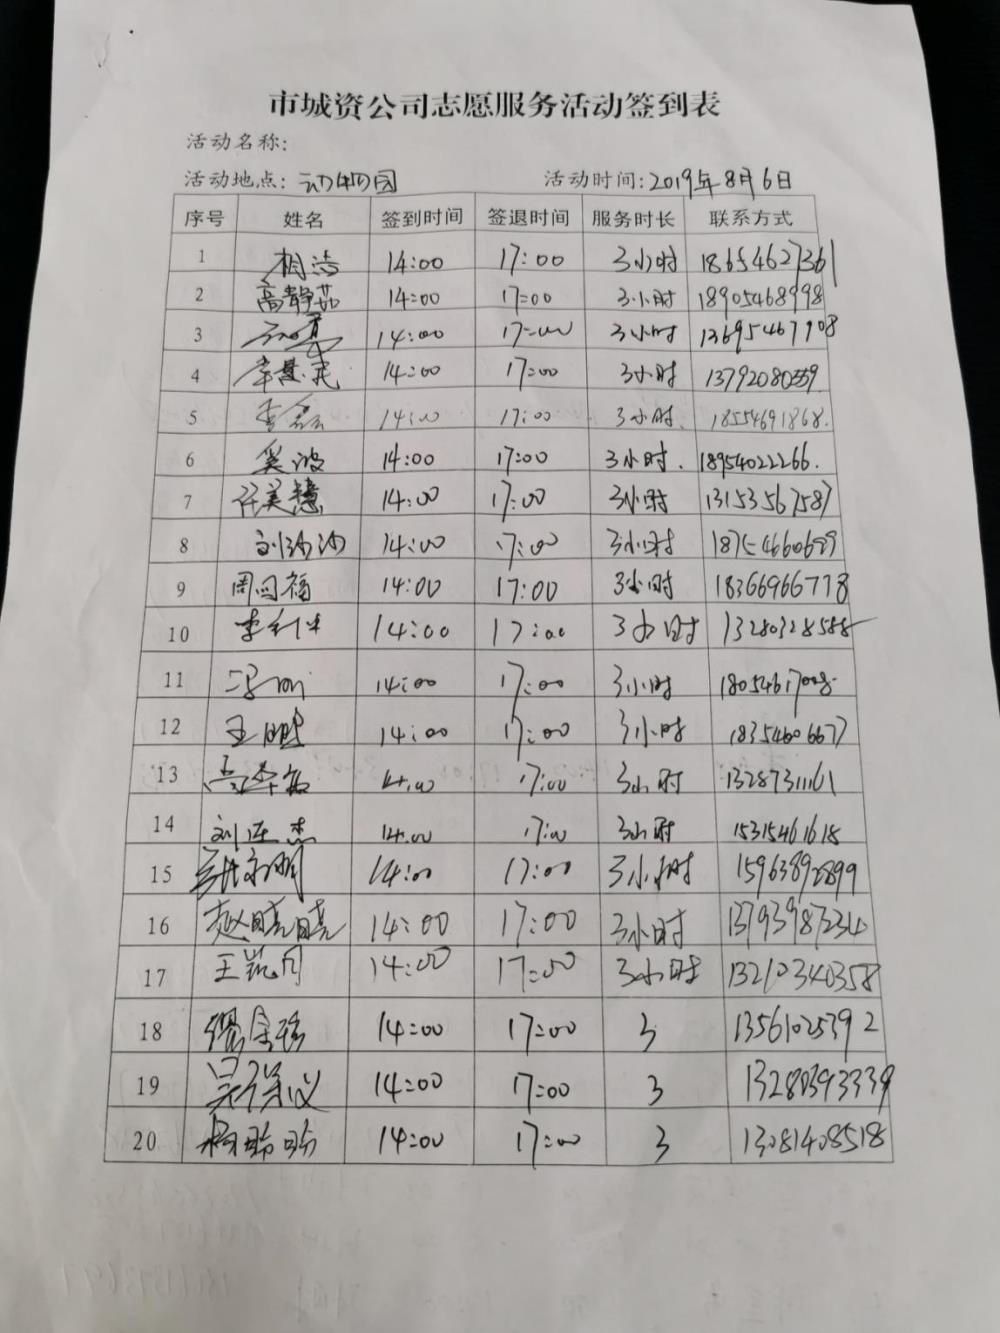 市城资公司志愿服务活动签到表
活动名称:
活动地点: 动物园 活动时间: 2019年8月6日
序号 姓名 签到时间 签退时间 服务时长 联系方式
1 相浩 14:00 17:00 3小时 18654627361
2 高静茹 14:00 17:00 3小时 18905468998
3 14:00 17:00 3小时 13695467908
4 14:00 17:00 3小时 13792080559
5 李磊 14:00 17:00 3小时. 18554691868.
6 吴波 14:00 17:00 3小时. 18954022266.
7 许美慧 14:00 17:00 3小时 13153567587
8 刘沙沙 14:00 17:00 3小时 18754660629
9 周国福 14:00 17:00 3小时 18366966778
10 李利华 14:00 17:00 3小时 13280328588
11 14:00 17:00 3小时
12 王鹏 14:00 17:00 3小时 18354606677
13 14:00 17:00 3小时 13287311161
14 刘连杰 14:00 17:00 3小时 15315461618
15 张永明 14:00 17:00 3小时 15963892899
16 赵晓晓 14:00 17:00 3小时 13793987234
17 王凯月 14:00 17:00 3小时 13210340358
18 14:00 17:00 3 13561025392
19 14:00 17:00 3 13280393339
20 杨盼盼 14:00 17:00 3 13081408518